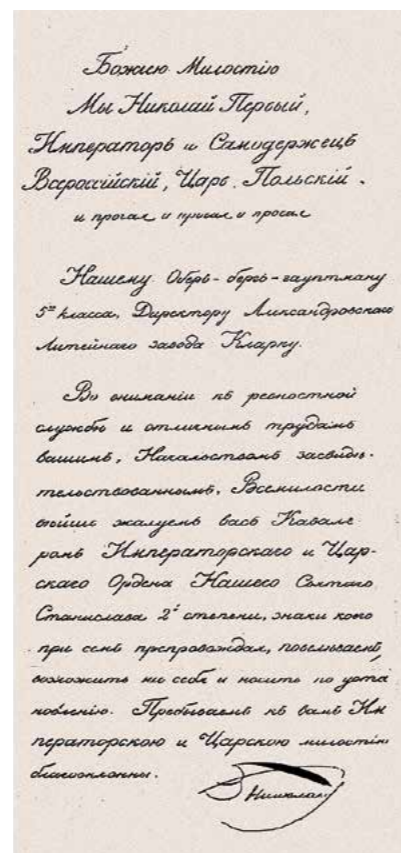 Божиею Милостію
Мы Николай Первый,
Императоръ и Самодержецъ
Всероссийскій, Царь Польскій.
и прочая и прочая и прочая
Нашему Оберъ-бергъ-гауптману
5го класса, Директору Александровскаго
Литейнаго завода Кларку.
Во вниманіи къ ревностной
службѣ и отличнымъ трудамъ
вашимъ, Начальствомъ засвидѣ-
тельствованнымъ, Всемилости
вѣйше жалуемъ васъ Кавале
ромъ Императорскаго и Цар-
скаго Ордена Нашего Святаго
Станислава 2й степени, знаки коего
при семъ препровождая, повелѣваемъ,
возложить на себя и носить по уста
новленію. Пребываемъ къ вамъ Им
ператорскою и Царскою милостію
благосклонны.
Николай